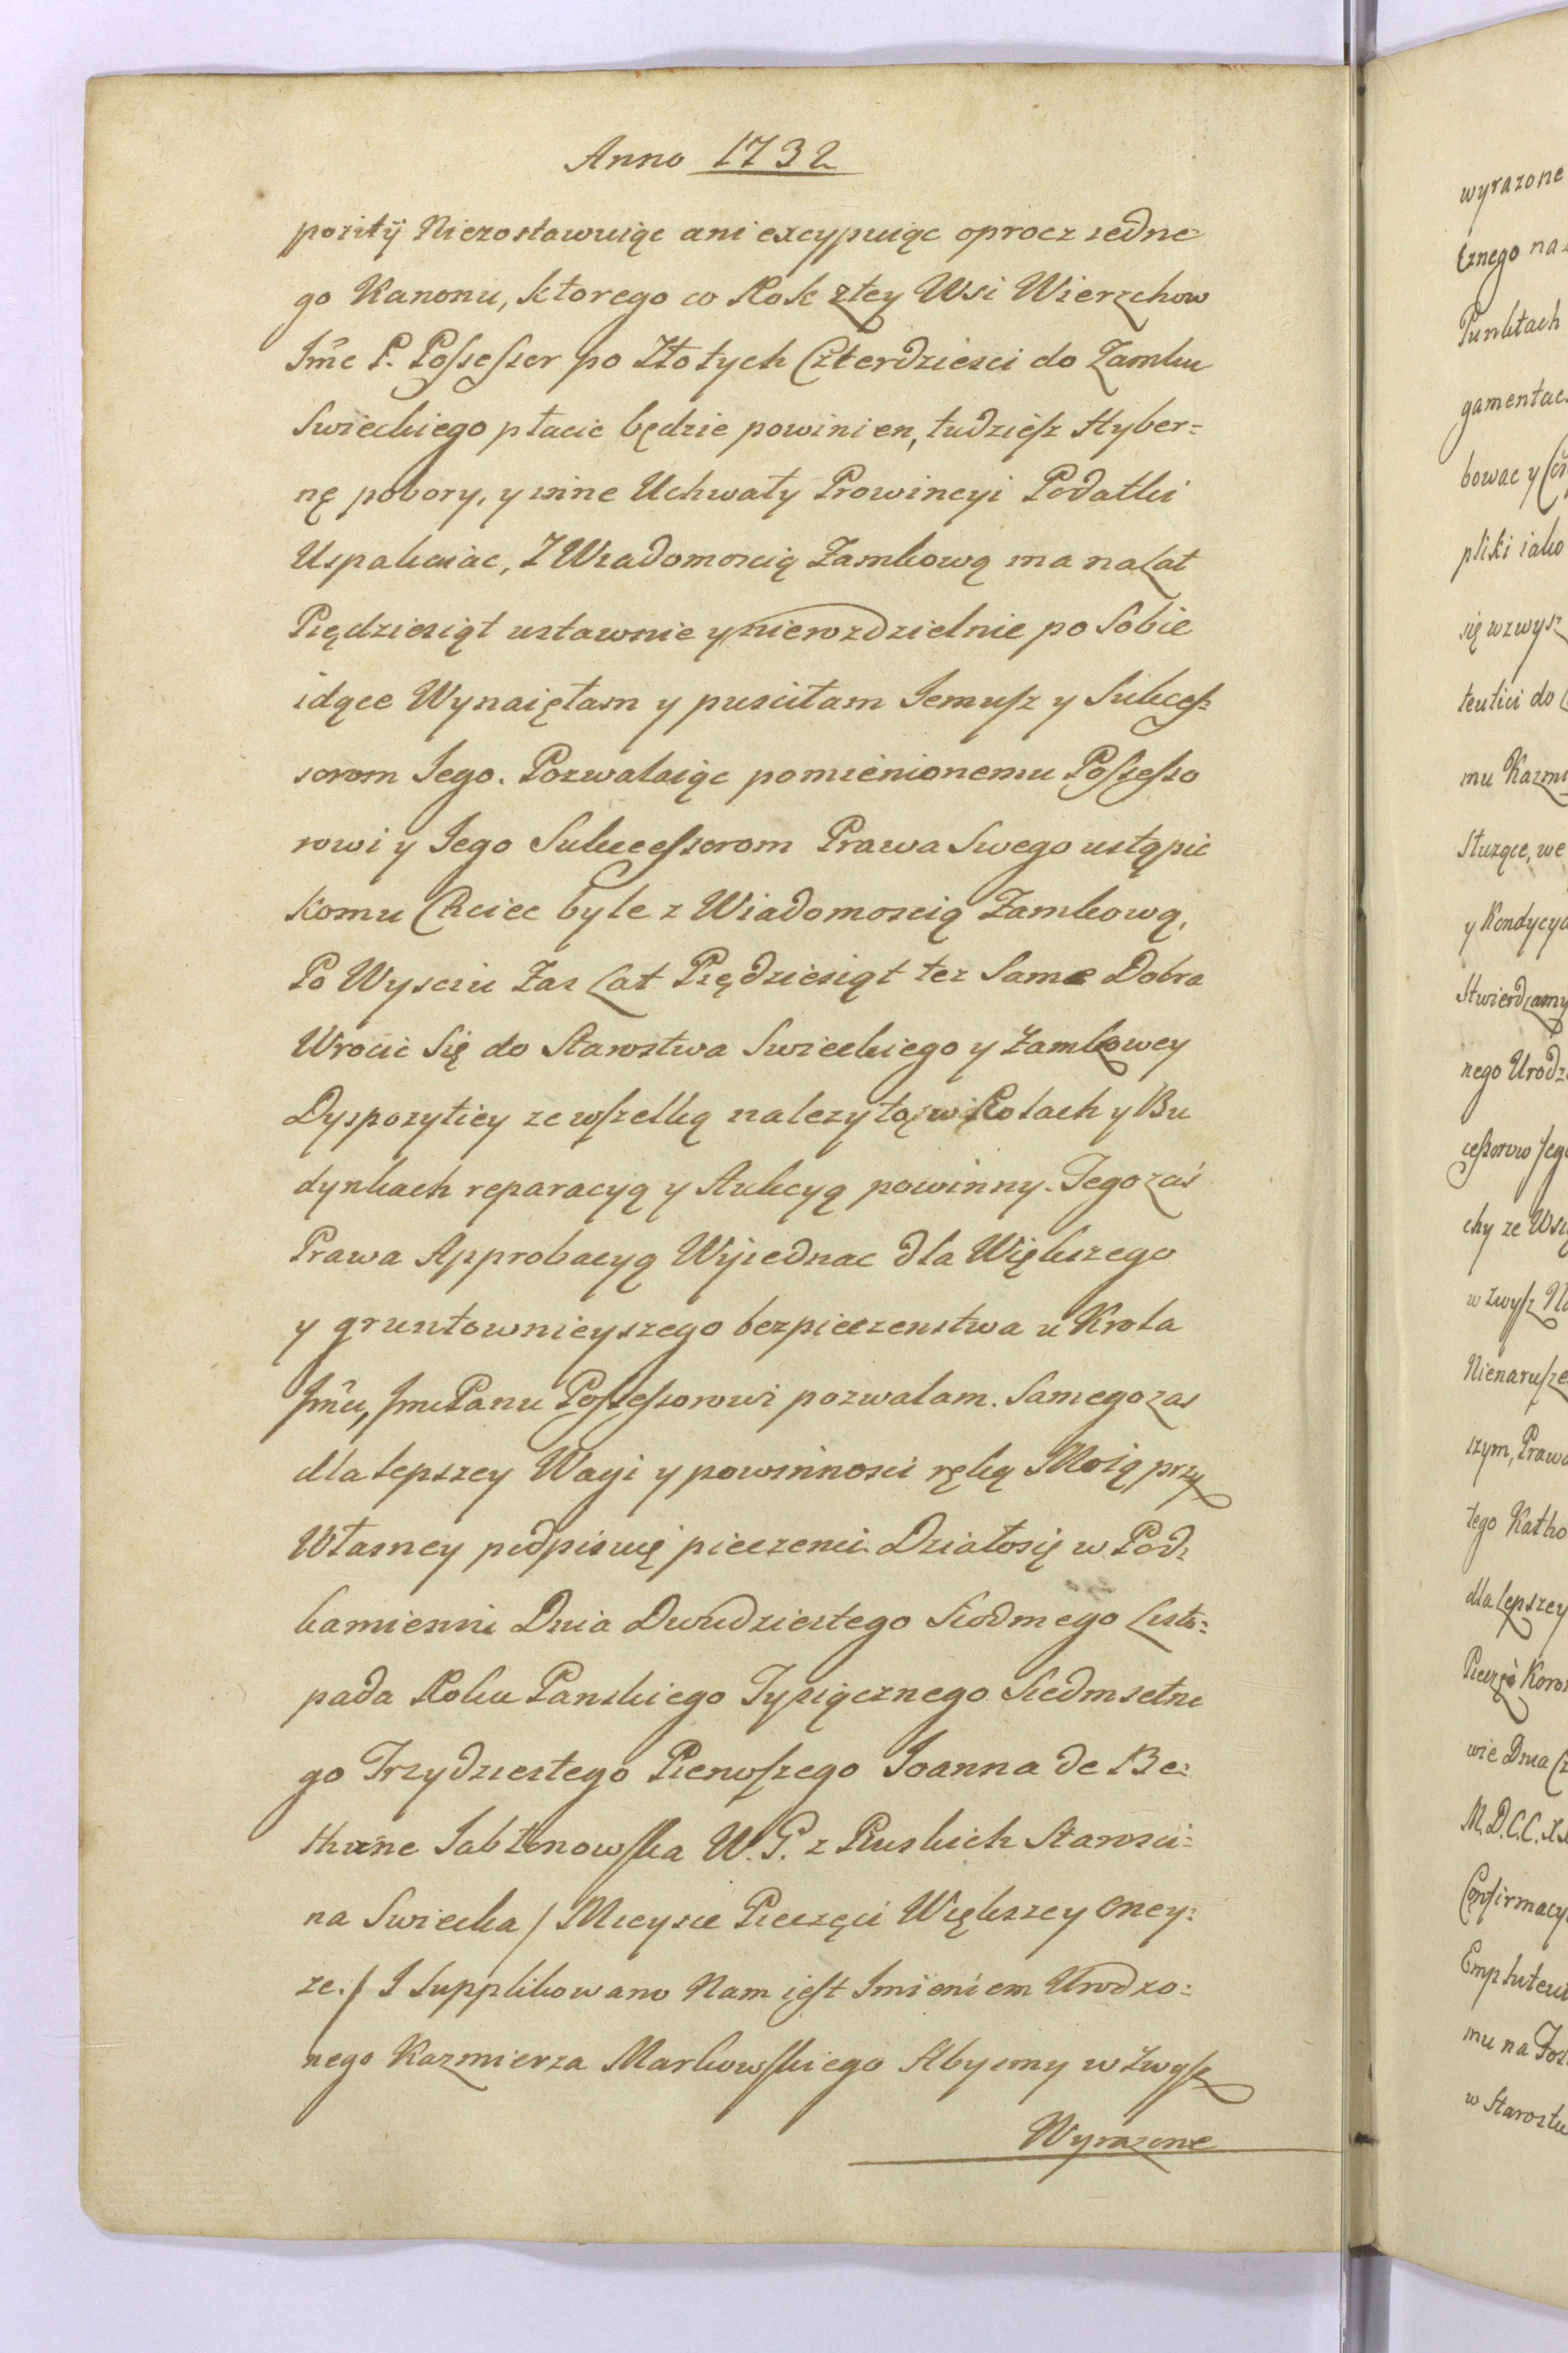 Anno 1732
pozitÿ Niezostawuiąc ani excypuiąc oprocz iedne
go Kanonu, ktorego co Rok ztey Wsi Wierzchow
Imc P. Possessor po Złotych Czterdziesci do Zamku
Swieckiego płacic będzie powinien, tudziesz Hyber=
nę pobory, y inne Uchwały Prowincyi Podatki
Uspakaiac, Z Wiadomoscią Zamkową ma na Lat
Piędziesiąt ustawnie y nierozdzielnie po Sobie
idące Wynaięłam y pusciłam Iemusz y Sukces=
sorom Iego. Pozwalaiąc pomienionemu Possesso
rowi y Iego Sukcessorom Prawa Swego ustąpic
komu Chciec byle z Wiadomoscią Zamkową,
Po Wysciu Zas Lat Piędziesiąt tez Same Dobra
Wrocic Się do Starostwa Swieckiego y Zamkowey
Dyspozytiey ze wszelką nalezytą w Rolach y Bu
dynkach reparacyą y Aukcyą powinny. Tego zaś
Prawa Approbacyą Wyiednac dla Większego
y gruntownieyszego bezpieczenstwa u Krola
Imci, Imci Panu Possessorowi pozwalam. Samego zas
dla lepszey Wagi y powinnosci ręką Moią przy
Własney podpisuię pieczenci. Działosię w Pod=
kamieniu Dnia Dwudziestego Siodmego Listo=
pada Roku Panskiego Tysiącznego Siedmsetne
go Trzydziestego Pierwszego Ioanna de Be=
thune Jabłonowska W. G. z Ruskich Starosci=
na Swiecka / Mieysce Pieczęci Większey oney=
ze. / I Supplikowano Nam iest Imieniem Urodzo=
nego Kazmierza Markowskiego Abysmy w Zwysz
Wyrazone
wyrazone
cznego na
Punktach
bowac y
pliki iako
się wzwysz
mu Kazmi
Sluzące, we
y Kondycya
Stwierdzamy
nego Urodz
cessorow Jego
chy ze Wsz
w Zwysz
Nienarusze
szym, Prawa
tego Katho
dla Lepszey
Koron
wie Dnia
M.D.C.C.
Confirmacy
mu na
w Starostw